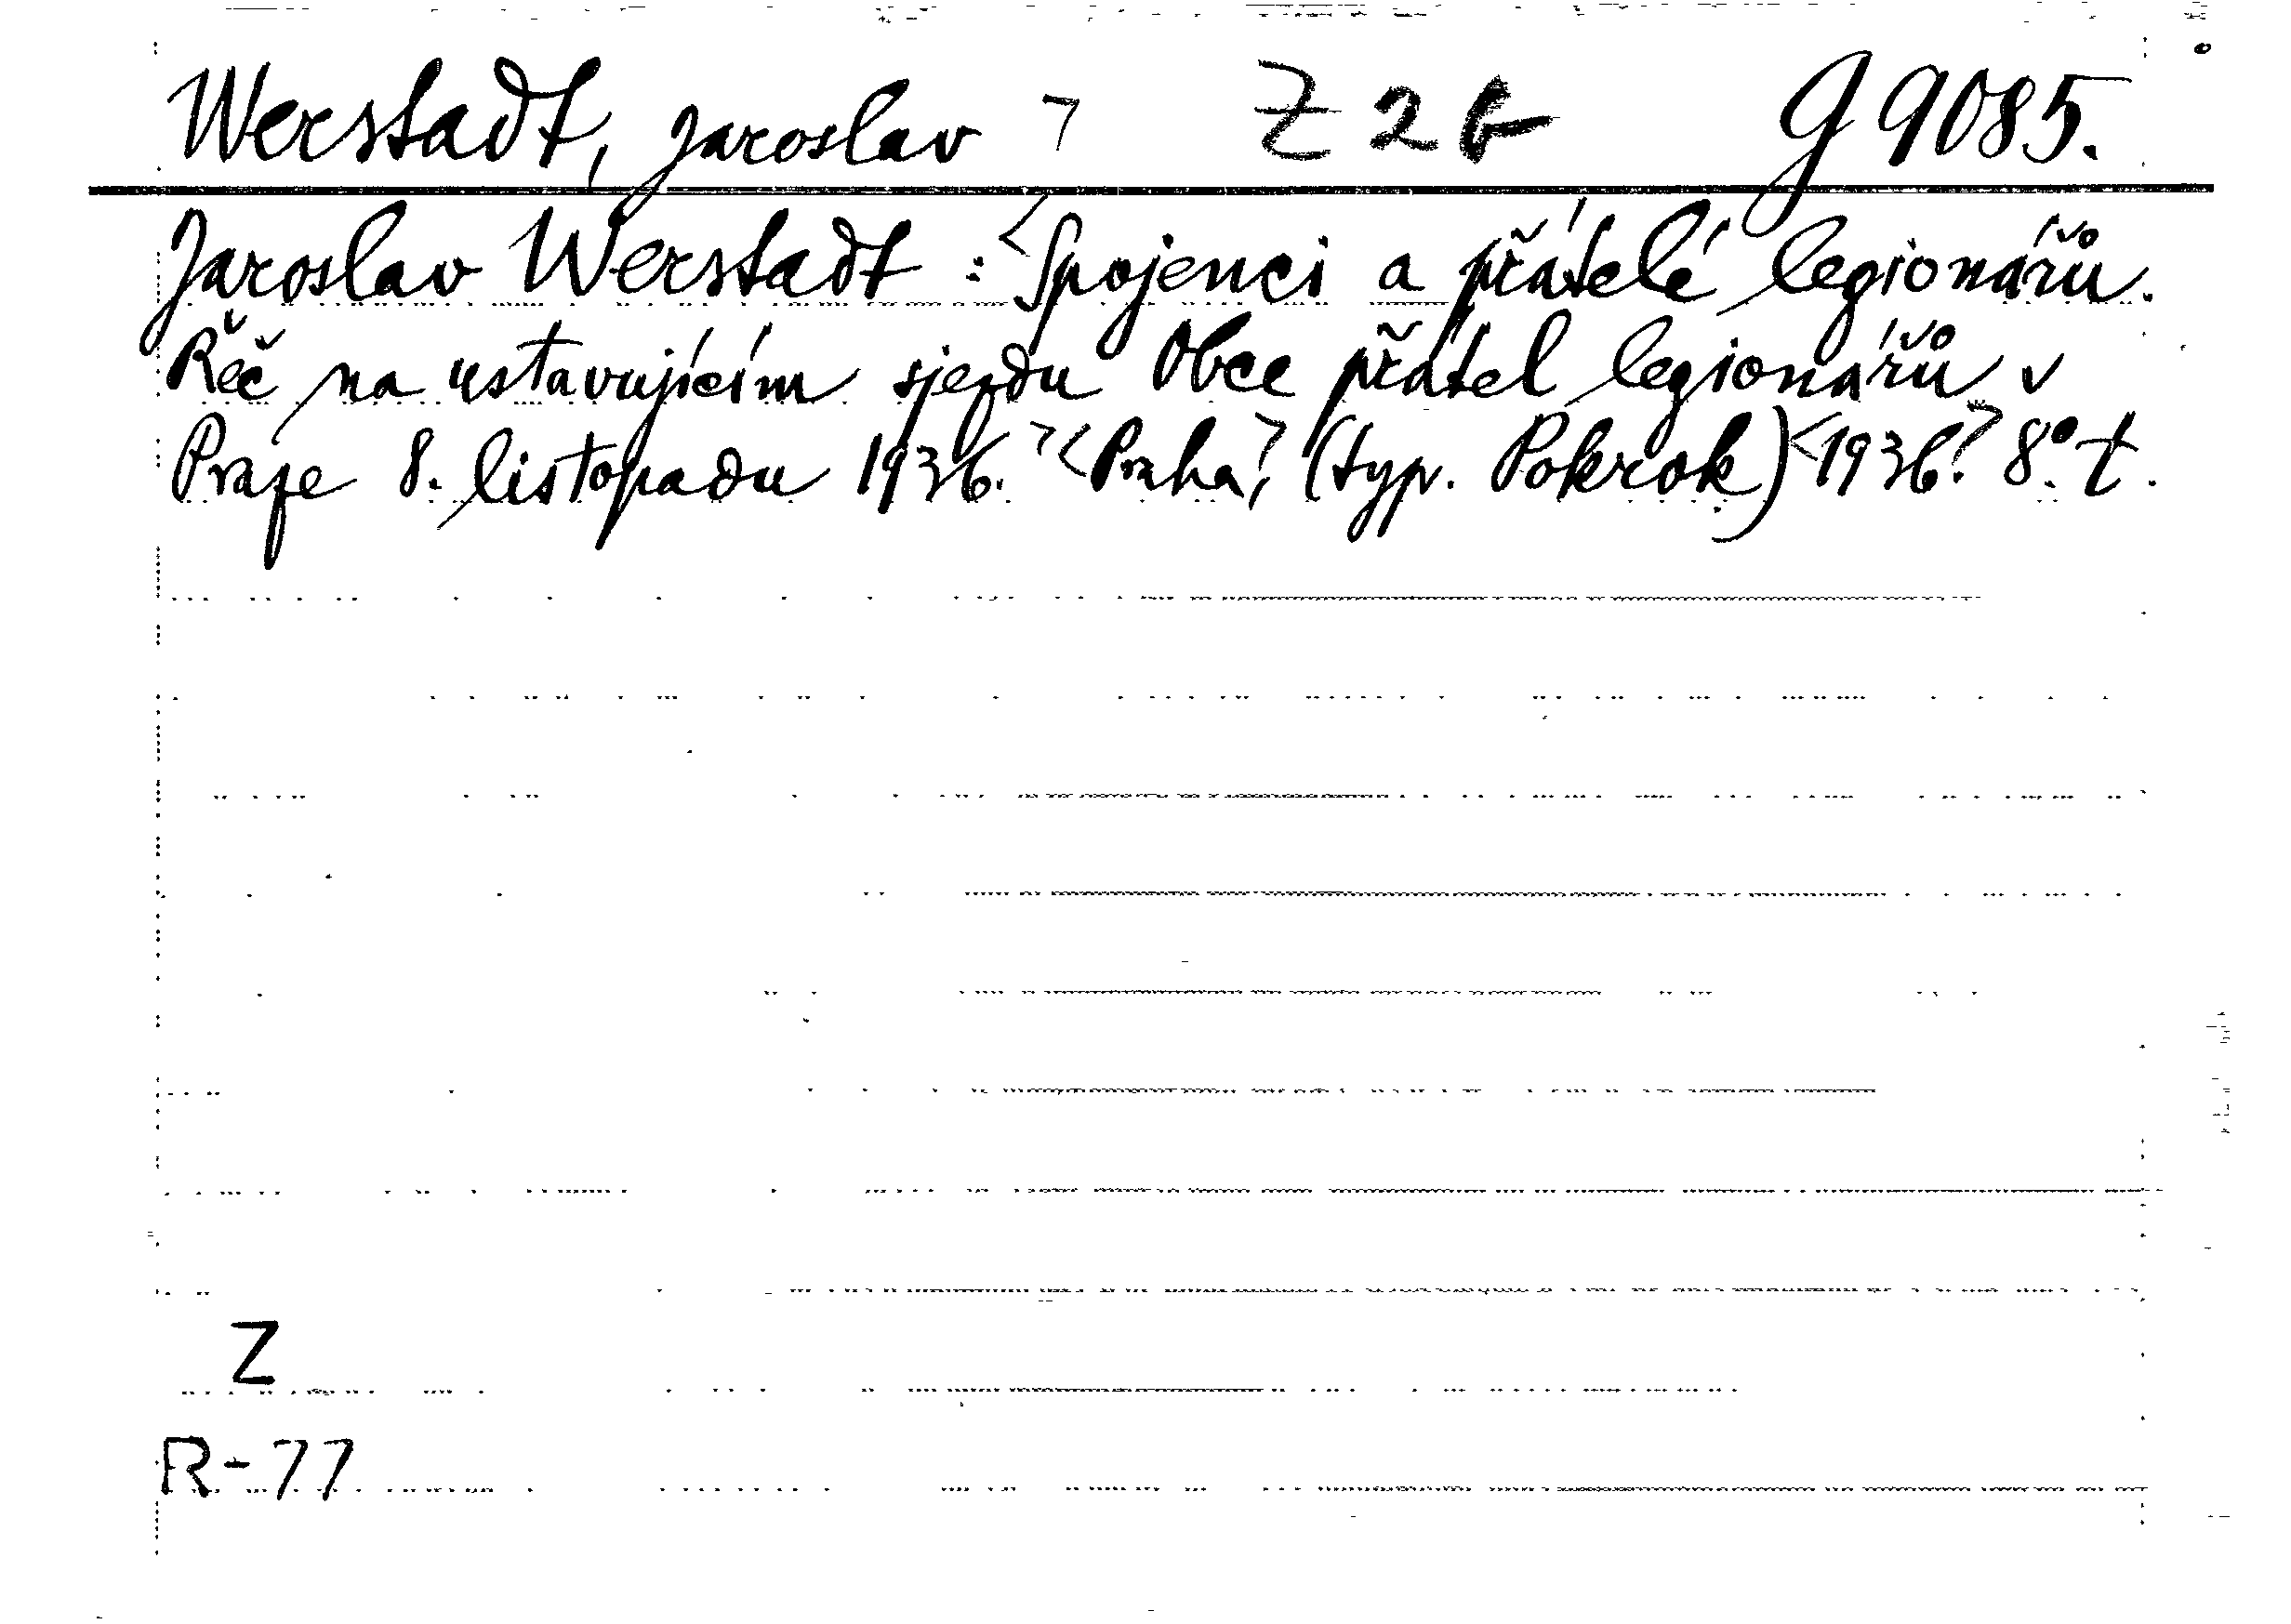 Werstadt, Jaroslav ⟩ Z 2 G 9085.
Jaroslav Werstadt : <Spojenci a přátelé legionářů.
Řeč na ustavujícím sjezdu Obce přátel legionářů v
Praze 8. listopadu 1936.> <Praha,> (typ. Pokrok) <1936.> 8°. t.
Z
R-77